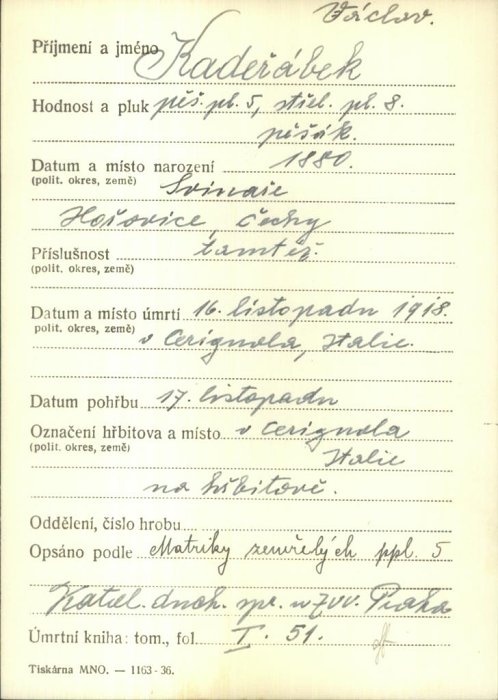 Václav.
Příjmení a jméno Kadeřábek
Hodnost a pluk pěš. pl. 5, střel. pl. 8.
pěšák.
Datum a místo narození 1880.
(polit. okres, země) Svinaře
Hořovice, Čechy
Příslušnost tamtéž.
(polit. okres, země)
Datum a místo úmrtí 16. listopadu 1918.
polit. okres, země) v Cerignola, Italie.
Datum pohřbu 17. listopadu
Označení hřbitova a místo v Cerignola
(polit. okres, země) Italie
na hřbitově.
Oddělení, číslo hrobu
Opsáno podle Matriky zemřelých ppl. 5
Katol. duch. spr. u ZVV. Praha
Úmrtní kniha: tom., fol. I. 51.
Tiskárna MNO. — 1163-36.